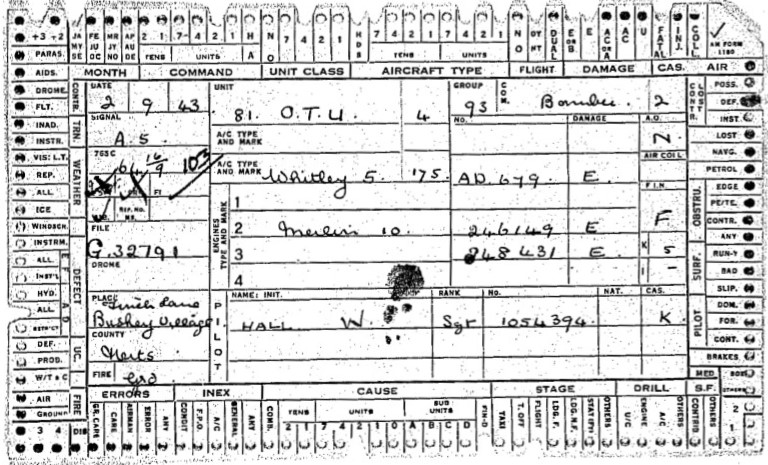 +3 +2 JA MY SE FE JU OC MR JY NO AP AU DE 2 1 7 4 2 1 H A N O 7 4 2 1 H D S 7 4 2 1 7 4 2 1 N O DY NHT DUAL E OR B E AC OR A AC U FATAL INJ. COLL. AM FORM 1180
PARAS. TENS UNITS TENS UNITS
AIDS. MONTH COMMAND UNIT CLASS AIRCRAFT TYPE FLIGHT DAMAGE CAS. AIR
DROME. CONTR. DATE UNIT GROUP COM. CONTR. LOST POSS.
FLT. 2 9 43 81. O.T.U. 4 93 Bomber. 2 DEF.
INAD. TRN. SIGNAL NO. DAMAGE A.O. INST.
INSTR. A.5. A/C TYPE AND MARK N. LOST
VIS: L.T. 765C AIR COLL NAVG.
REP. WEATHER 16/9 A/C TYPE AND MARK Whitley 5. 175. AD. 679. E. PETROL
ALL FI F.I.R. OBSTRU. EDGE
ICE REF. NO. ENGINES TYPE AND MARK 1 PE/TE.
WINDSCN. FILE 2 Merlin 10. 246149 E F CONTR.
INSTRM. G.32791 3 248431 E. K 5 ANY
ALL DEFECT DROME 4 I - SURF. RUN-Y
INST'L BAD
HYD. PLACE PILOT NAME: INIT. RANK No. NAT. CAS. SLIP.
ALL Bushey Village HALL W. Sgt 1054394. K. PILOT DOM.
DISTRICT COUNTY FOR.
DEF. UC. Herts. CONT.
PROD. FIRE BRAKES
W/T & C Grd MED. BOS
AIR FIRE ERRORS INEX CAUSE STAGE DRILL S.F. OTHERS
GROUND GR. CARE CARE AIRMAN ERROR ANY CONDIT F.P.O. A/C GENERAL ANY COND. TENS UNITS SUB UNITS FIN-D TAXI T. OFF FLIGHT LDG. F. LDG. N.F. STAT'RY OTHERS U/C ENGINE A/C OTHERS CONTRIB OTHERS 2
3 4 DIS 2 1 7 4 2 1 0 A B C D 1